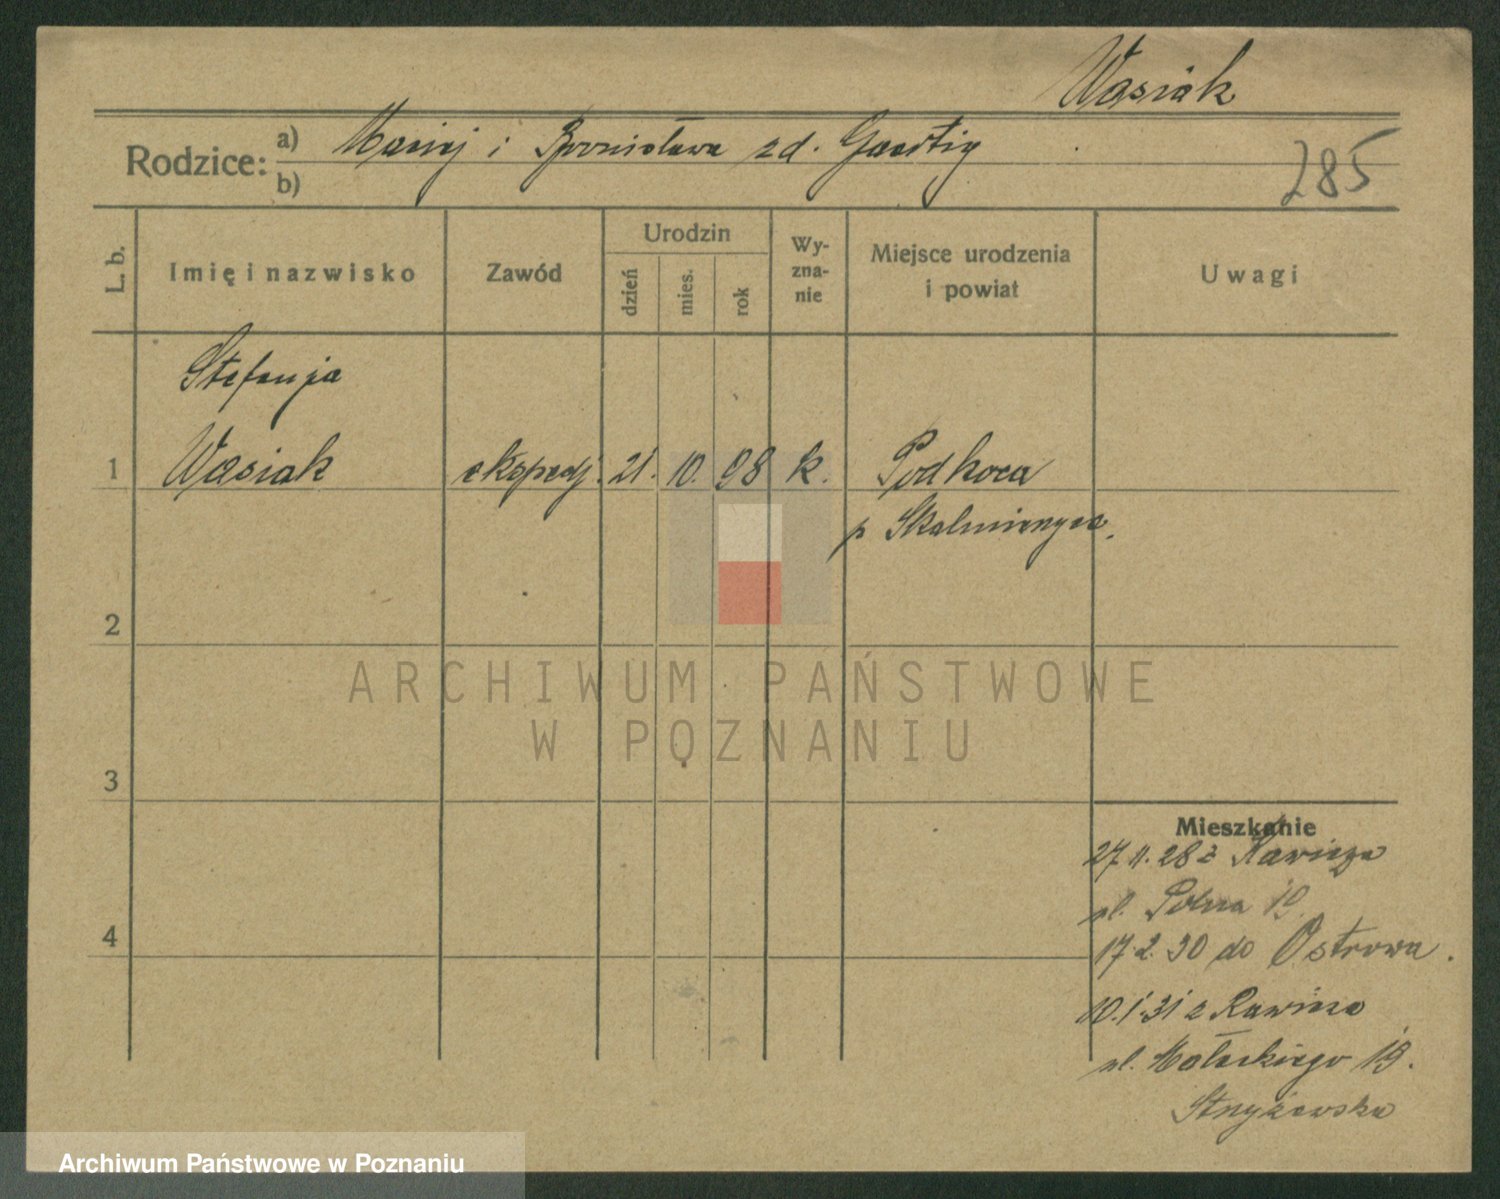 Wasiak
Rodzice: a) Maciej i Bronisława zd. Gaertig
b)
285
L. b.
Imię i nazwisko
Zawód
Urodzin
dzień
mies.
rok
Wy-
zna-
nie
Miejsce urodzenia
i powiat
Uwagi
Stefanja
1 Wasiak ekspedj. 21. 10. 98 k. Podkoca
p Skalmierzyce.
2
3
4
Mieszkanie
27.11.28 z Rawicza
ul. Polna 10
17.2.30 do Ostrowa.
10.1.31 z Rawicza
ul. 13.
Stryżewska
ARCHIWUM PAŃSTWOWE
W POZNANIU
Archiwum Państwowe w Poznaniu